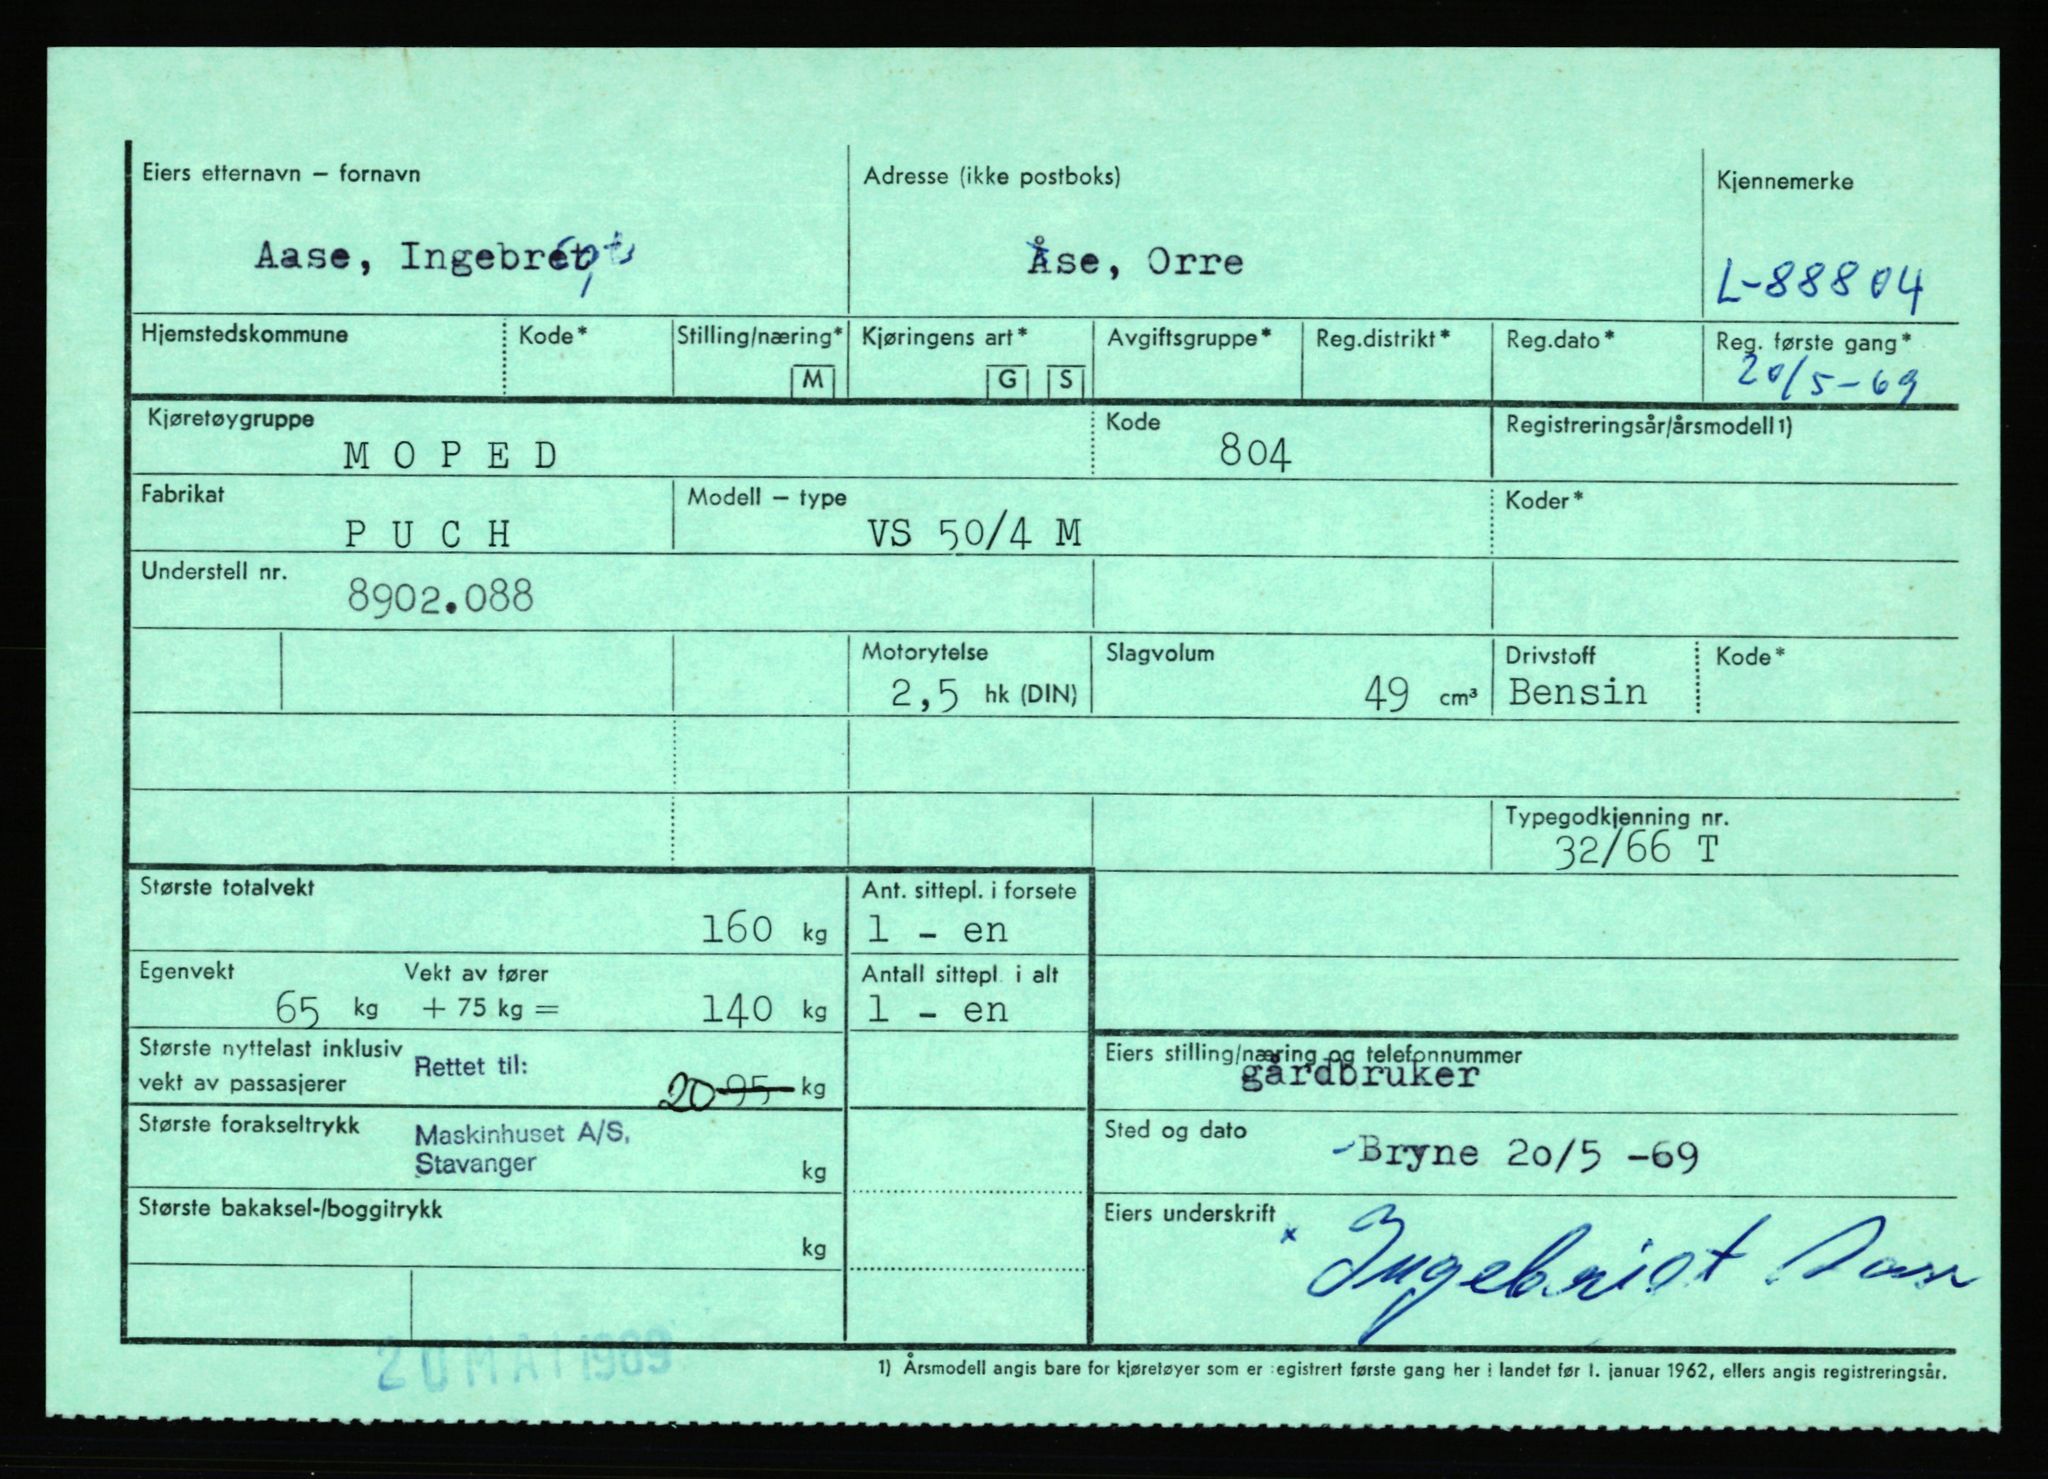 Eiers etternavn – fornavn
Adresse (ikke postboks)
Kjennemerke
Aase, Ingebret
Åse, Orre
L-88804
Hjemstedskommune
Kode*
Stilling/næring*
M
Kjøringens art*
G S
Avgiftsgruppe*
Reg.distrikt*
Reg.dato*
Reg. første gang*
20/5-69
Kjøretøygruppe
MOPED
Kode
804
Registreringsår/årsmodell1)
Fabrikat
PUCH
Modell – type
VS 50/4 M
Koder*
Understell nr.
8902.088
Motorytelse
2,5 hk (DIN)
Slagvolum
49 cm³
Drivstoff
Bensin
Kode*
Typegodkjenning nr.
32/66 T
Største totalvekt
160 kg
Ant. sittepl. i forsete
1 - en
Egenvekt
65 kg
Vekt av fører
+ 75 kg =
140 kg
Antall sittepl. i alt
1 - en
Største nyttelast inklusiv
vekt av passasjerer
Rettet til:
20 95 kg
Eiers stilling/næring og telefonnummer
gårdbruker
Største forakseltrykk
Maskinhuset A/S,
Stavanger
kg
Sted og dato
-Bryne 20/5 -69
Største bakaksel-/boggitrykk
kg
Eiers underskrift
x Ingebrigt Aase
20 MAI 1969
1) Årsmodell angis bare for kjøretøyer som er registrert første gang her i landet før 1. januar 1962, ellers angis registreringsår.